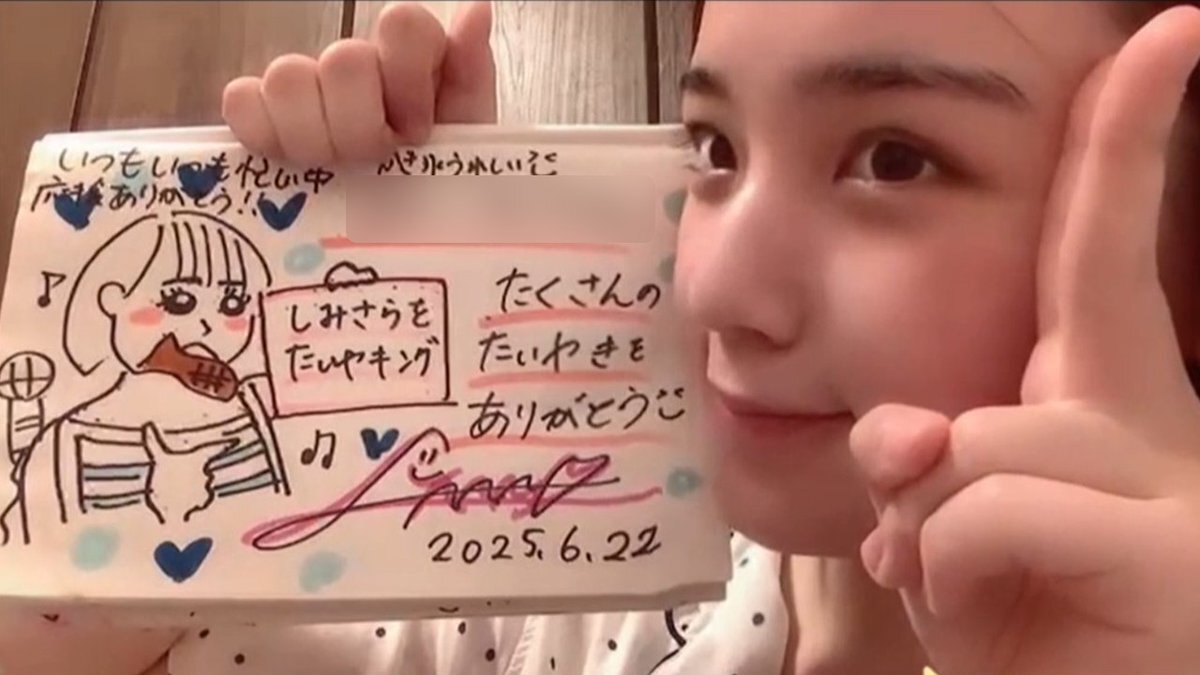 いつもいつも忙しい中
応援ありがとう!!
うれしい
しみさらを
たいヤキング
たくさんの
たいやきを
ありがとう
2025.6.22